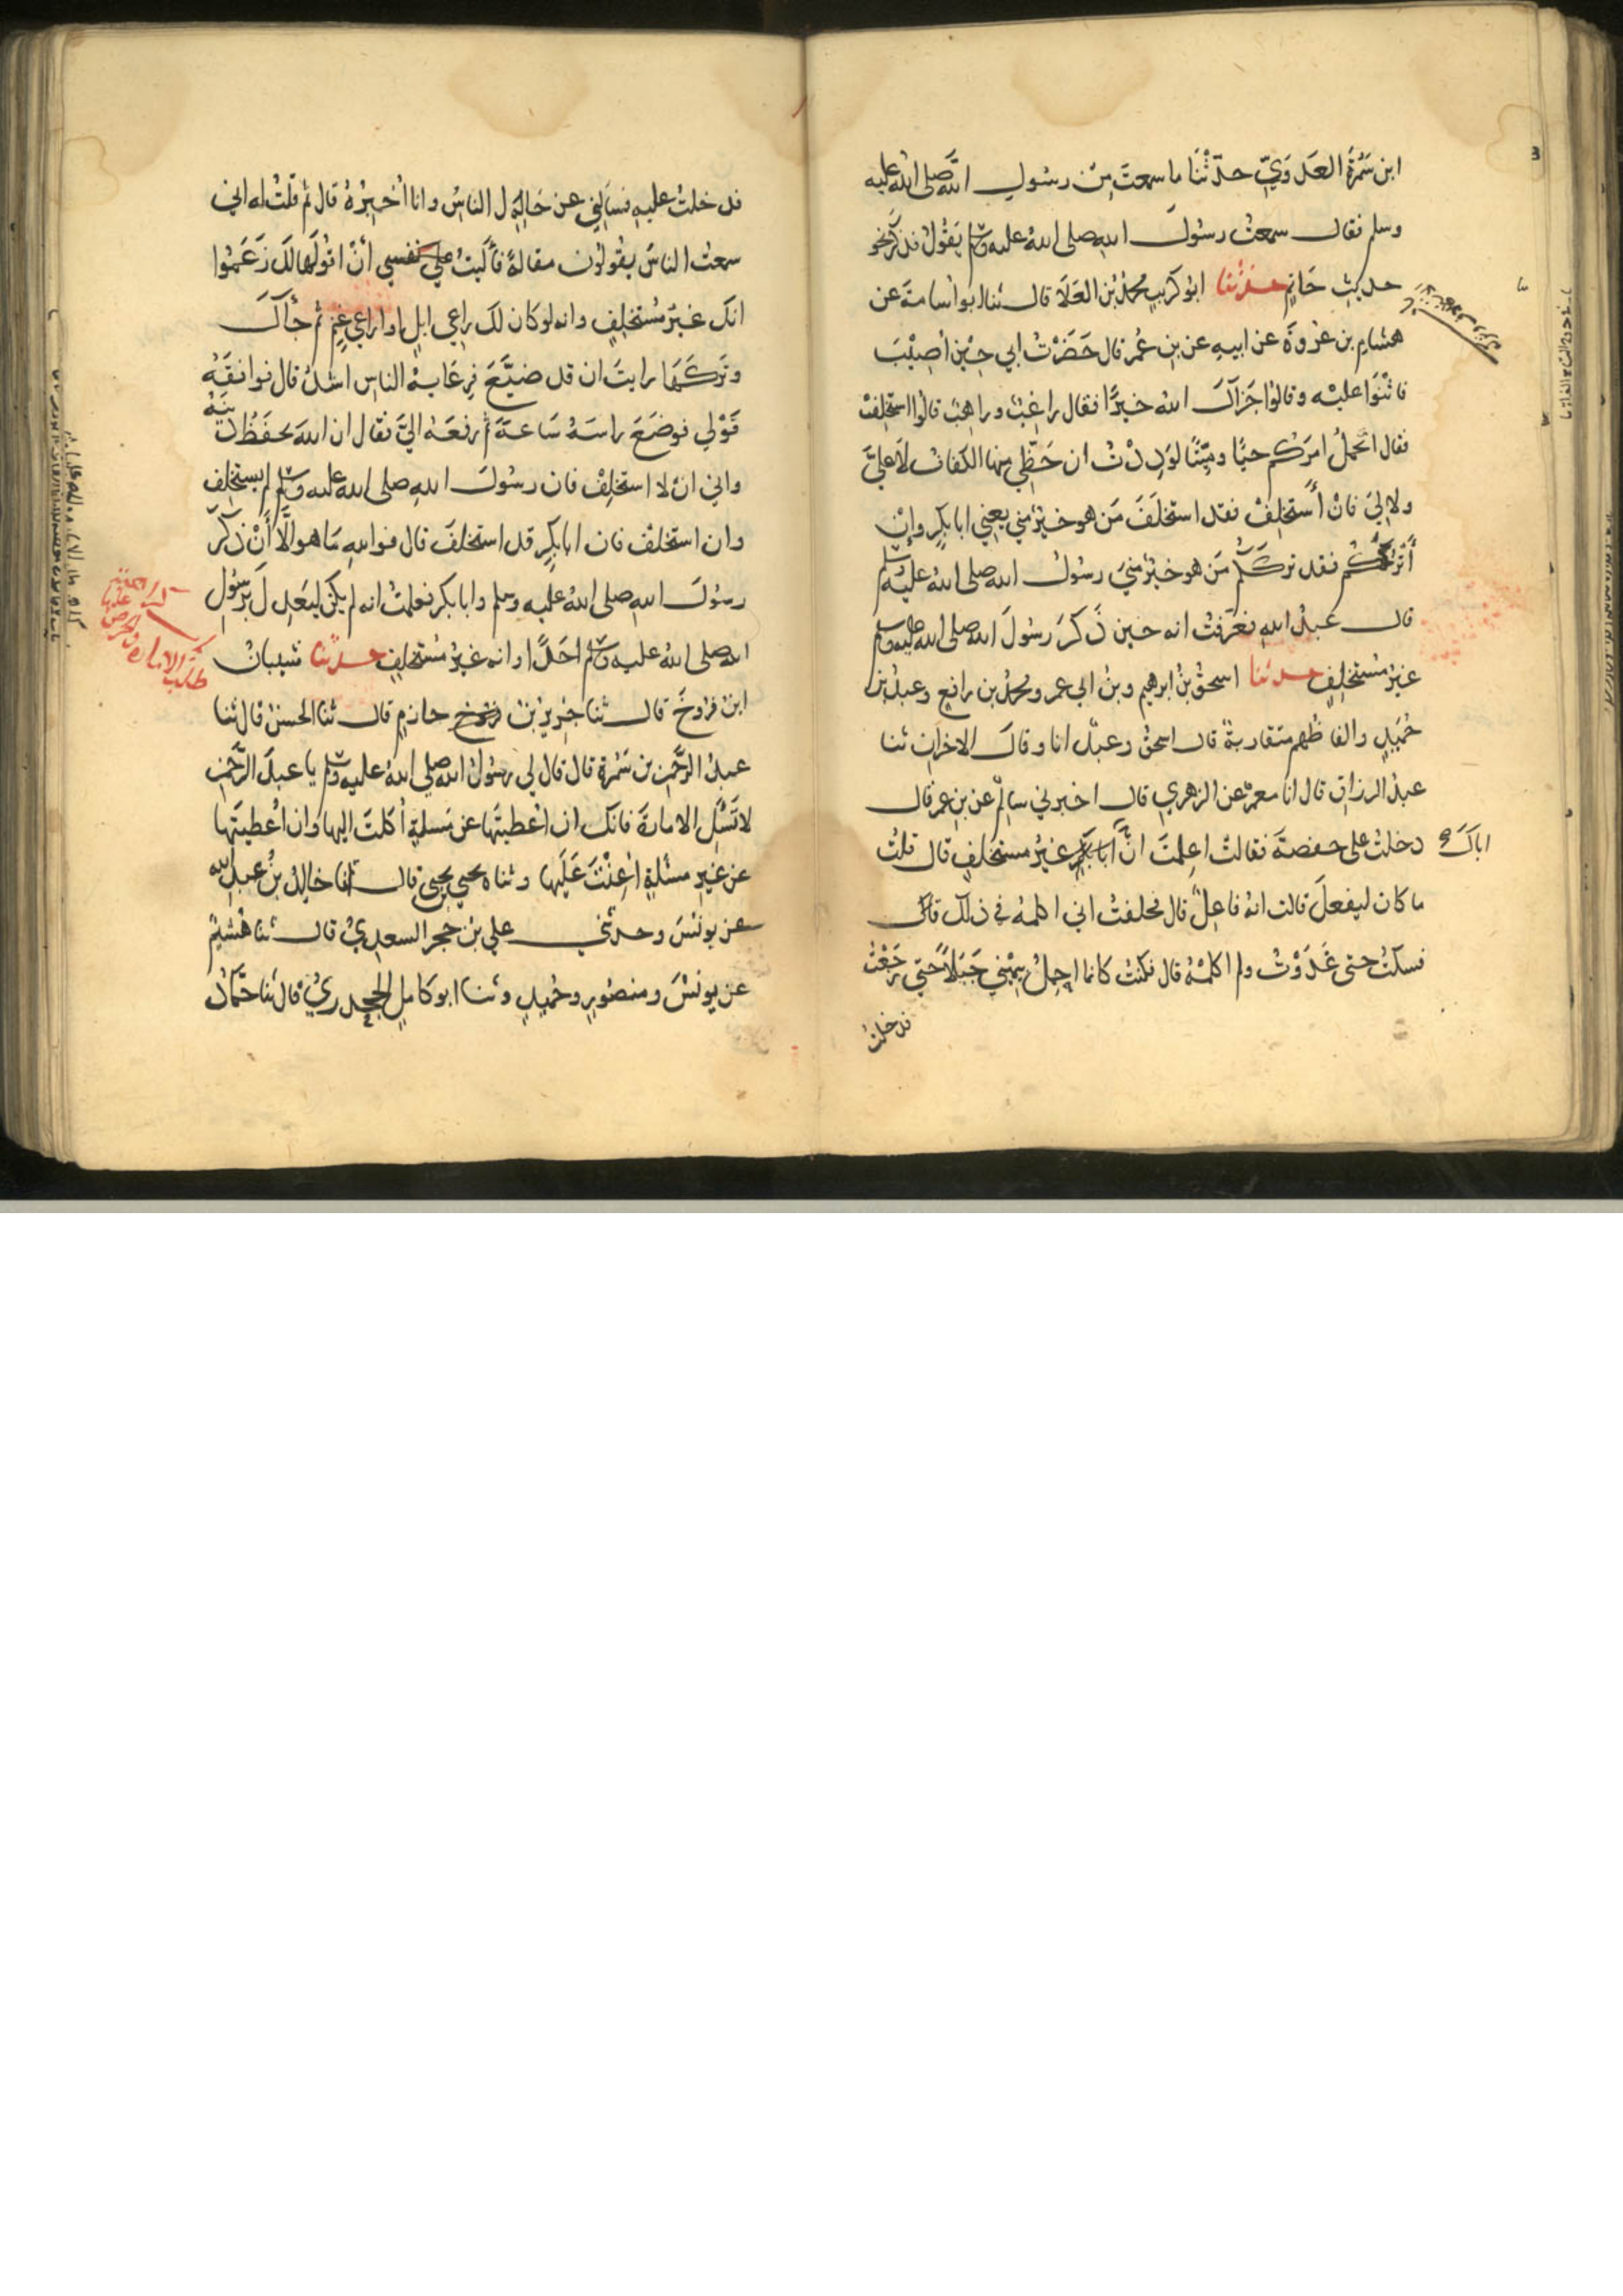 ابن سَمُرَةَ العَدَوِيّ حدّثْنَا ما سمعتَ مِن رسولِ الله صلى الله عليه
وسلم فقال سمعتُ رسولَ اللهِ صلى اللهُ عليه وسلم يَقُولُ فذكرَ نحو
حديثِ حَاتِمٍ حدثنا ابو كريبٍ محمدُ بن العَلَا قال ثنا ابو اسامةَ عن
هشامِ بن عُروَةَ عن ابيهِ عن بن عُمر قال حَضَرْتُ ابي حِيْنَ اُصِيْبَ
فاثْنَوا عليْه وقالوُا جَزَاكَ اللهُ خيرًا فقال راغِبٌ وراهِبٌ قالوُا استخلِفْ
فقال اتحَمَّلُ امرَكُم حيًّا ومَيِّتًا لوَدِدْتُ ان حَظِّي منها الكَفَافُ لاَ عليَّ
ولا لِيَ فانْ أَستخلِفْ فقد استخلَفَ مَن هو خيرٌ منِّي يعني ابا بكرٍ وإنْ
أَتْرُكْكُم فقد تركَكُم مَن هو خيرٌ منيّ رسولُ اللهِ صلى اللهُ عليه وسلم
قال عبدُ اللهِ فعَرَفتُ انه حين ذَكرَ رسولَ الله صلى الله عليه وسلم
غيرُ مُستخلِفٍ حدثنا اسحقُ بنُ ابرهيم وبنُ ابي عمر ومحمدُ بن رافعٍ وعبدُ بنُ
حُمَيدٍ والفاظُهم متقاربةٌ قال اسحقُ وعبدٌ انا وقالَ الاخرانِ ثنا
عبدُ الرزاقِ قال انا معمرٌ عن الزهري قال اخبرني سالمٌ عن بنِ عمرَ قال
دخلتُ على حفصةَ فقالتْ اعلِمتَ انَّ ابا بكرٍ غيرُ مستخلِفٍ قال قلتُ
اباكَ
ما كان ليفعلَ قالت انهُ فاعِلٌ قال فحلفتُ اني اكلمهُ في ذلك قال
فسكتُّ حتى غَدَوْتُ ولم اكلمْهُ قال فكنتُ كانما احمِلُ بيَمِيْنِي جَبَلاً حتى رَجَعْتُ
فدخلتُ
فدخلتُ عليهِ فسَالَنِي عن حَالِ الناسِ وانا اُخبِرُهُ قال ثم قلتُ له اني
سمعتُ الناسَ يقولوُن مقالةً فآلَيتُ على نفسي أَنْ اقولَها لكَ زَعَموُا
انكَ غيرُ مُستخلِفٍ وانه لو كان لك راعي ابلٍ او راعي غنمٍ ثم جاءَكَ
وتركَهَا رايتَ ان قد ضيَّعَ فرِعَايةُ الناسِ اشدُّ قال فوافقَهُ
قَوْلي فوضَعَ راسَهُ سَاعةً ثم رفعَهُ اليَّ فقال ان اللهَ يحفَظُ دينَهُ
واني انْ لا استخلِفْ فان رسُولَ اللهِ صلى اللهُ عليه وسلم لم يستخلِف
وان استخلفْ فان ابا بكرٍ قد استخلفَ قال فواللهِ مَا هو الَّا أَنْ ذكَرَ
رسوُلَ اللهِ صلى اللهُ عليهِ وسلم وابا بكر فعلمتُ انه لم يكن ليَعدِلَ برسُولِ
الله صلى اللهُ عليه وسلم احَدًا وانه غيرُ مُستخلِفٍ حدثنا شيبانُ
ابن فَرُّوخَ قال ثنا جريرُ بنُ حازمٍ قال ثنا الحسنُ قال ثنا
عبدُ الرَّحمنِ بن سَمُرةَ قال قال لي رسولُ اللهِ صلى اللهُ عليه وسلم يا عبدَ الرَّحمنِ
لا تَسْئَلِ الامارةَ فانكَ ان اُعطيتَها عن مَسئلةٍ اُكلتَ اليها وان اُعْطيتَها
عن غيرِ مسئلةٍ اُعِنْتَ عَلَيها وثناه يحيى بن يحيى قال انا خالدُ بنُ عبدِ الله
عن يونُسَ وحدثني علي بن حُجرٍ السعديُّ قال ثنا هُشيمٌ
عن يونُسَ ومنصُورٍ وحُميدٍ وثنا ابو كاملٍ الجحدريُّ قال ثنا حمَّادُ
طلب الاماره والحرص عليها